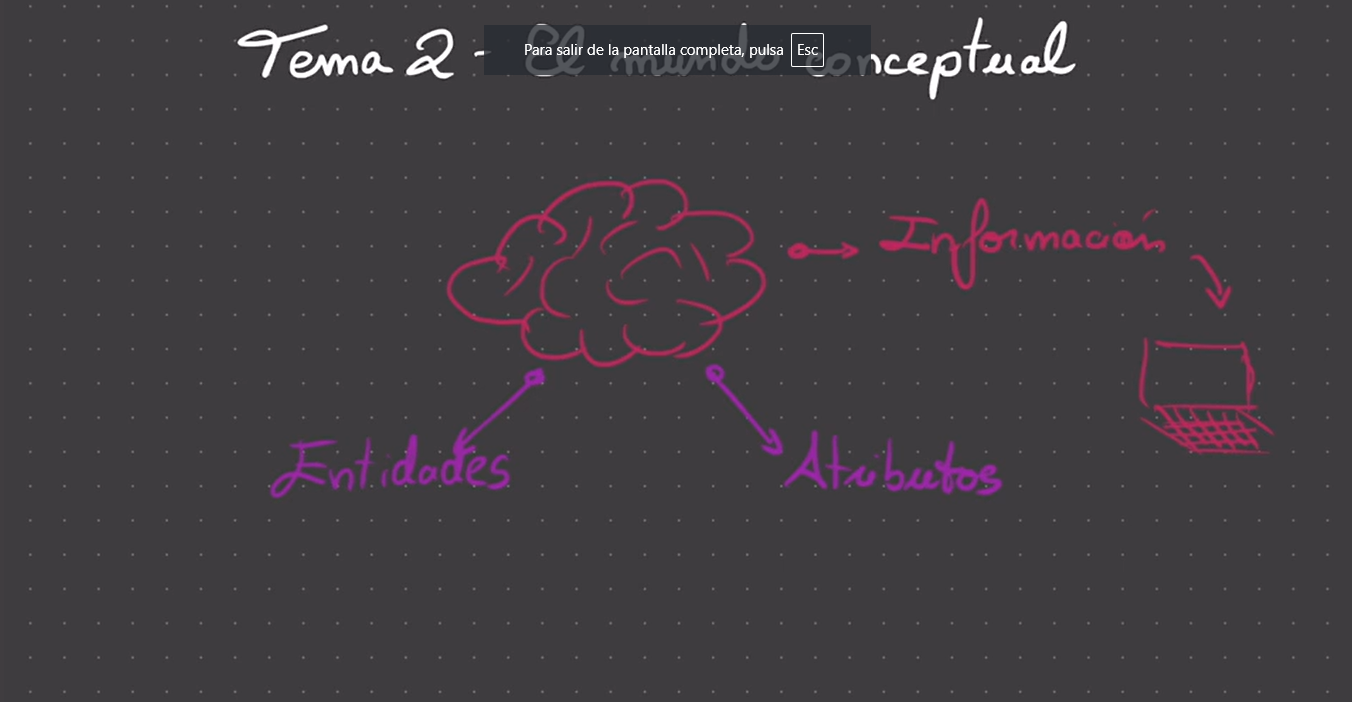 Tema 2 - El mundo conceptual
Para salir de la pantalla completa, pulsa Esc
Información
Entidades
Atributos